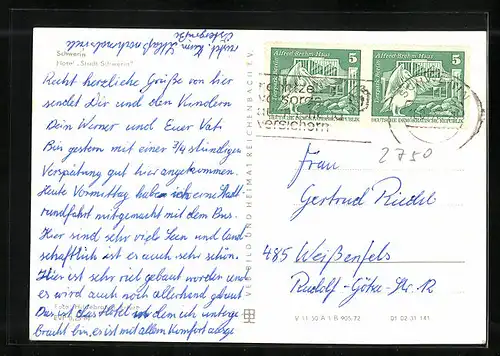 Schwerin
Hotel „Stadt Schwerin"
Recht herzliche Grüße von hier
sendet Dir und den Kindern
Dein Werner und Euer Vati
Bin gestern mit einer 3/4 stündigen
Verspätung gut hier angekommen.
Heute Vormittag haben schon eine Stadt
rundfahrt mitgemacht mit dem Bus.
Hier sind sehr viel Seen und land
schaftlich ist es auch sehr schön.
Hier ist sehr viel gebaut worden und
es wird auch noch allerhand gebaut
Das ist das Hotel in dem ich unterge
bracht bin, es ist mit allem Komfort ausge
VEB BILD UND HEIMAT REICHENBACH I. V.
Alfred-Brehm-Haus 5
Tierpark Berlin
DEUTSCHE DEMOKRATISCHE REPUBLIK
Alfred-Brehm-Haus 5
DEUTSCHE DEMOKRATISCHE REPUBLIK
versichern
2750
Frau
Gertrud Riedel
485 Weißenfels
Rudolf-Götze-Str. 12
V 11 50 A 1 B 905/72 01 02 31 141